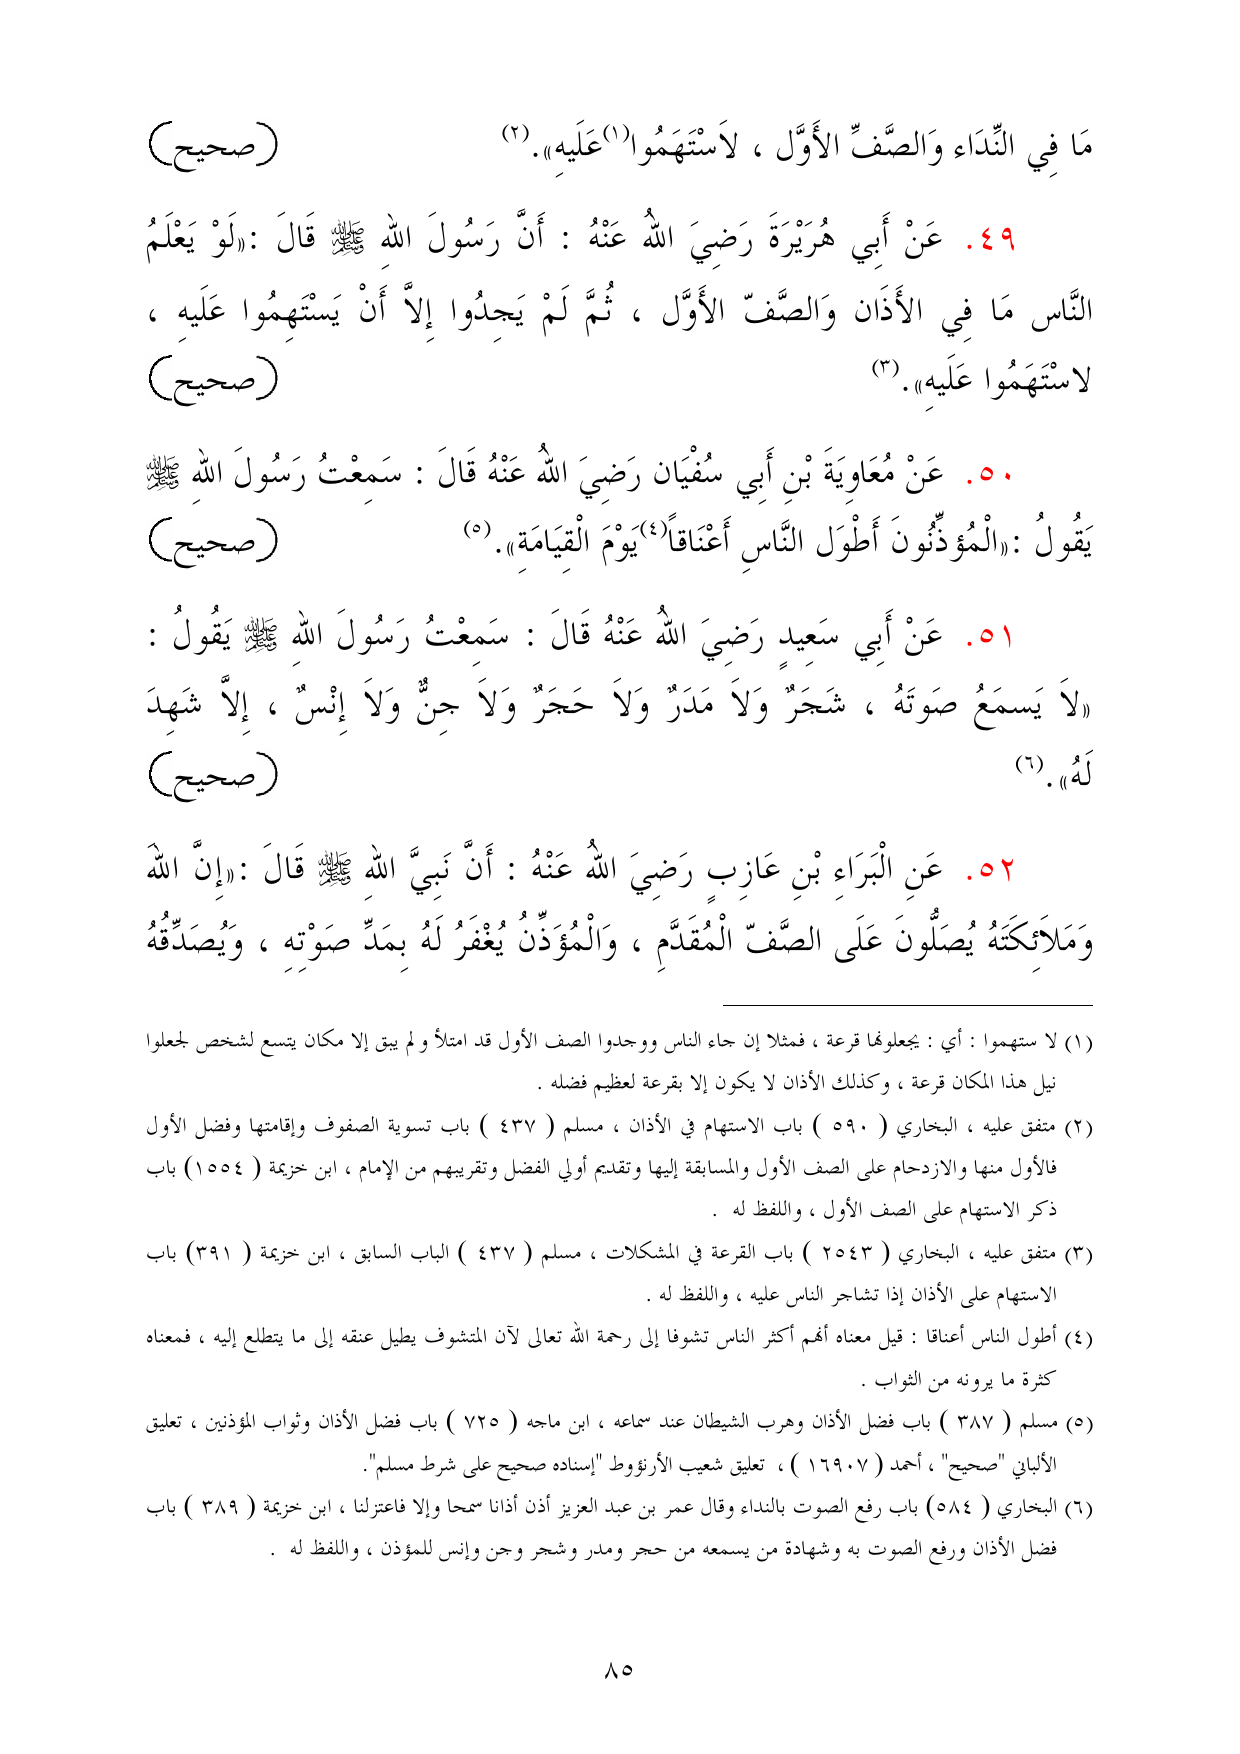 مَا فِي النِّدَاء وَالصَّفِّ الأَوَّل ، لاَسْتَهَمُوا(١)عَلَيهِ».(٢) (صحيح)
٤٩. عَنْ أَبِي هُرَيْرَةَ رَضِيَ اللهُ عَنْهُ : أَنَّ رَسُولَ اللهِ ﷺ قَالَ :«لَوْ يَعْلَمُ
النَّاس مَا فِي الأَذَان وَالصَّفّ الأَوَّل ، ثُمَّ لَمْ يَجِدُوا إِلاَّ أَنْ يَسْتَهِمُوا عَلَيهِ ،
لاسْتَهَمُوا عَلَيهِ».(٣) (صحيح)
٥٠. عَنْ مُعَاوِيَةَ بْنِ أَبِي سُفْيَان رَضِيَ اللهُ عَنْهُ قَالَ : سَمِعْتُ رَسُولَ اللهِ ﷺ
يَقُولُ :«الْمُؤذِّنُونَ أَطْوَل النَّاسِ أَعْنَاقاً(٤)يَوْمَ الْقِيَامَةِ».(٥) (صحيح)
٥١. عَنْ أَبِي سَعِيدٍ رَضِيَ اللهُ عَنْهُ قَالَ : سَمِعْتُ رَسُولَ اللهِ ﷺ يَقُولُ :
«لاَ يَسمَعُ صَوتَهُ ، شَجَرٌ وَلاَ مَدَرٌ وَلاَ حَجَرٌ وَلاَ جِنٌّ وَلاَ إِنْسٌ ، إِلاَّ شَهِدَ
لَهُ».(٦) (صحيح)
٥٢. عَنِ الْبَرَاءِ بْنِ عَازِبٍ رَضِيَ اللهُ عَنْهُ : أَنَّ نَبِيَّ اللهِ ﷺ قَالَ :«إِنَّ اللهَ
وَمَلاَئِكَتَهُ يُصَلُّونَ عَلَى الصَّفّ الْمُقَدَّمِ ، وَالْمُؤَذِّنُ يُغْفَرُ لَهُ بِمَدِّ صَوْتِهِ ، وَيُصَدِّقُهُ
(١) لا ستهموا : أي : يجعلونها قرعة ، فمثلا إن جاء الناس ووجدوا الصف الأول قد امتلأ ولم يبق إلا مكان يتسع لشخص لجعلوا
نيل هذا المكان قرعة ، وكذلك الأذان لا يكون إلا بقرعة لعظيم فضله .
(٢) متفق عليه ، البخاري ( ٥٩٠ ) باب الاستهام في الأذان ، مسلم ( ٤٣٧ ) باب تسوية الصفوف وإقامتها وفضل الأول
فالأول منها والازدحام على الصف الأول والمسابقة إليها وتقديم أولي الفضل وتقريبهم من الإمام ، ابن خزيمة ( ١٥٥٤) باب
ذكر الاستهام على الصف الأول ، واللفظ له .
(٣) متفق عليه ، البخاري ( ٢٥٤٣ ) باب القرعة في المشكلات ، مسلم ( ٤٣٧ ) الباب السابق ، ابن خزيمة ( ٣٩١) باب
الاستهام على الأذان إذا تشاجر الناس عليه ، واللفظ له .
(٤) أطول الناس أعناقا : قيل معناه أنهم أكثر الناس تشوفا إلى رحمة الله تعالى لآن المتشوف يطيل عنقه إلى ما يتطلع إليه ، فمعناه
كثرة ما يرونه من الثواب .
(٥) مسلم ( ٣٨٧ ) باب فضل الأذان وهرب الشيطان عند سماعه ، ابن ماجه ( ٧٢٥ ) باب فضل الأذان وثواب المؤذنين ، تعليق
الألباني "صحيح" ، أحمد ( ١٦٩٠٧ ) ، تعليق شعيب الأرنؤوط "إسناده صحيح على شرط مسلم".
(٦) البخاري ( ٥٨٤) باب رفع الصوت بالنداء وقال عمر بن عبد العزيز أذن أذانا سمحا وإلا فاعتزلنا ، ابن خزيمة ( ٣٨٩ ) باب
فضل الأذان ورفع الصوت به وشهادة من يسمعه من حجر ومدر وشجر وجن وإنس للمؤذن ، واللفظ له .
٨٥